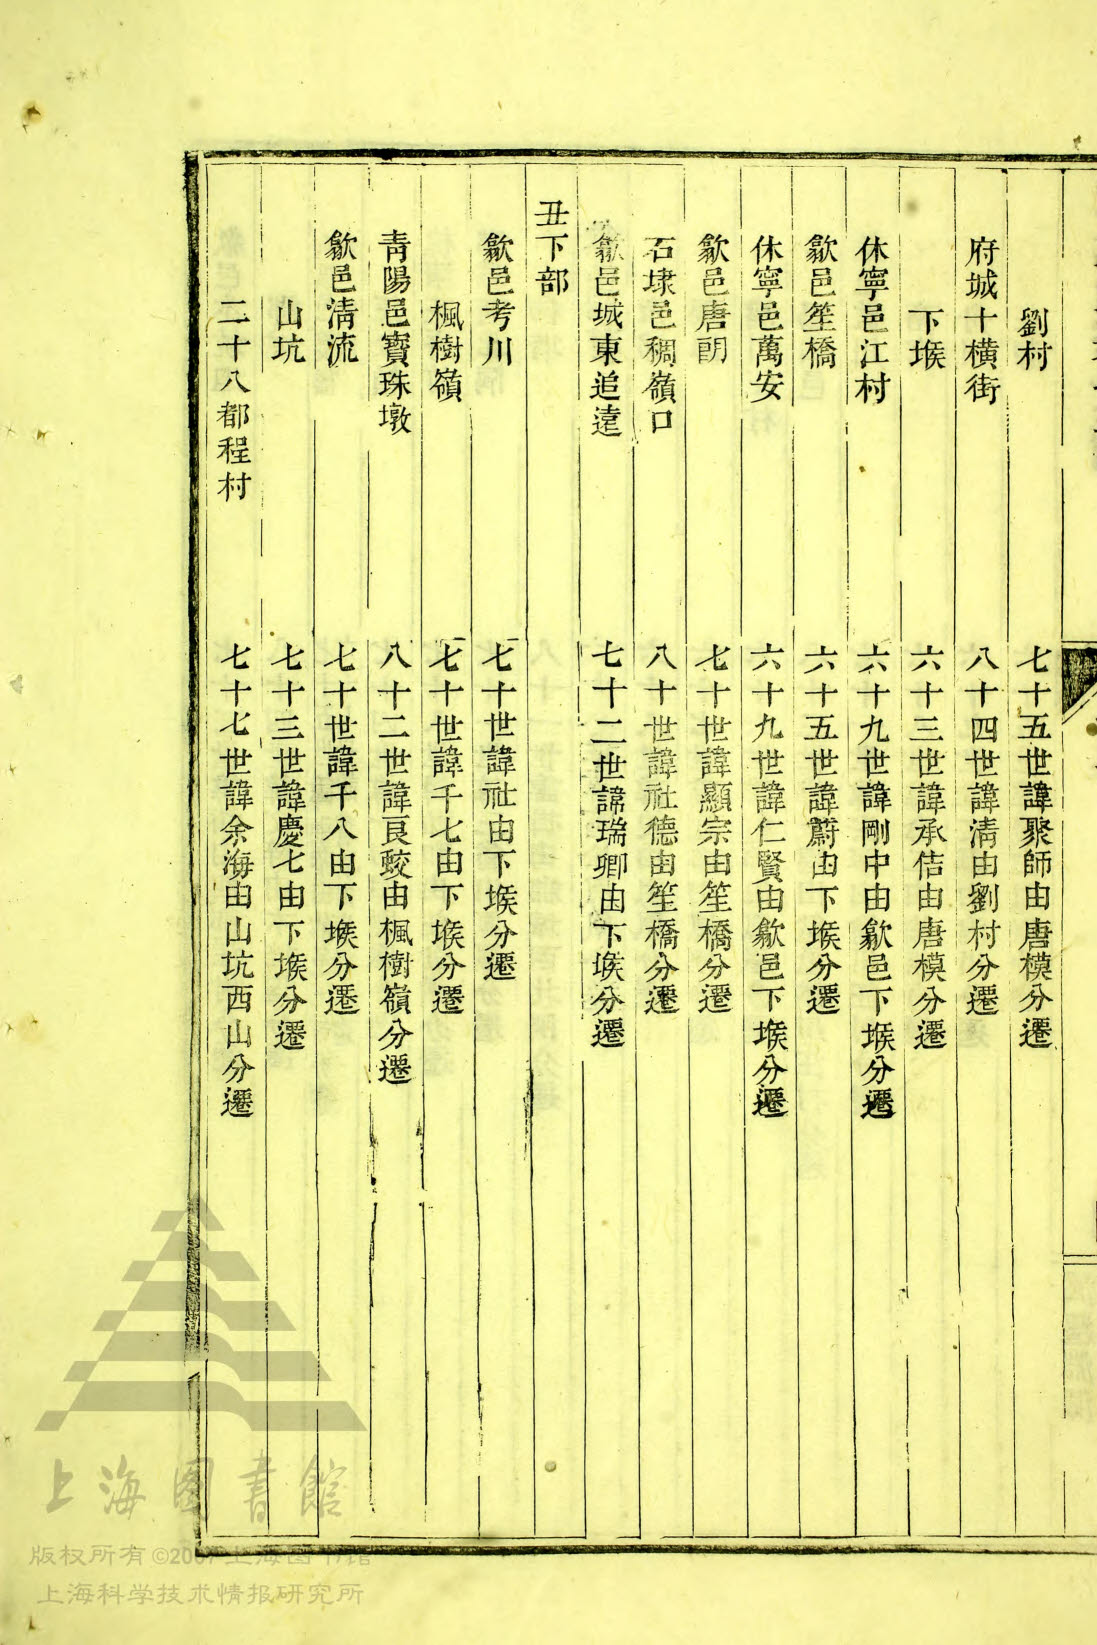 劉村　七十五世諱聚師由唐模分遷
府城十橫街　八十四世諱清由劉村分遷
下堠　六十三世諱承佶由唐模分遷
休寧邑江村　六十九世諱剛中由歙邑下堠分遷
歙邑笙橋　六十五世諱蔚由下堠分遷
休寧邑萬安　六十九世諱仁賢由歙邑下堠分遷
歙邑唐朗　七十世諱顯宗由笙橋分遷
石埭邑稠嶺口　八十世諱社德由笙橋分遷
歙邑城東追遠　七十二世諱瑞卿由下堠分遷
丑下部
歙邑考川　七十世諱社由下堠分遷
楓樹嶺　七十世諱千七由下堠分遷
青陽邑寶珠墩　八十二世諱良蛟由楓樹嶺分遷
歙邑清流　七十世諱千八由下堠分遷
山坑　七十三世諱慶七由下堠分遷
二十八都程村　七十七世諱余海由山坑西山分遷
上海圖書館
版权所有©2007上海图书馆
上海科学技术情报研究所